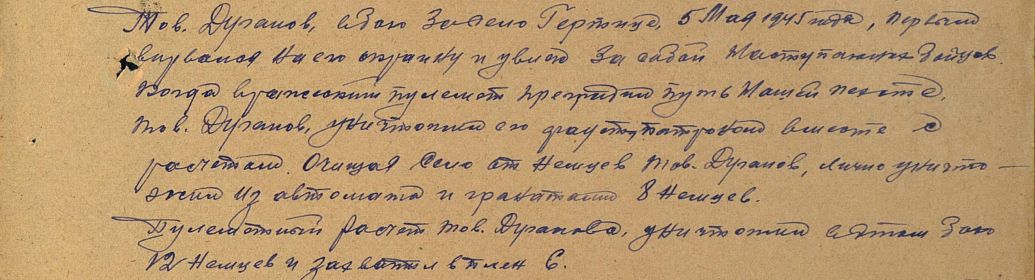 Тов. Дуганов, в бою за село Гертице, 5 мая 1945 года, первым
ворвался на его окраину и увлек за собой наступающих бойцов.
Когда вражеский пулемет преградил путь нашей пехоте,
тов. Дуганов, уничтожил его фауст, патроном вместе с
расчетом. Очищая село от немцев тов. Дуганов, лично уничто-
жил из автомата и гранатами 8 немцев.
Пулеметный расчет тов. Дуганова, уничтожил в этом бою
12 немцев и захватил в плен 6.